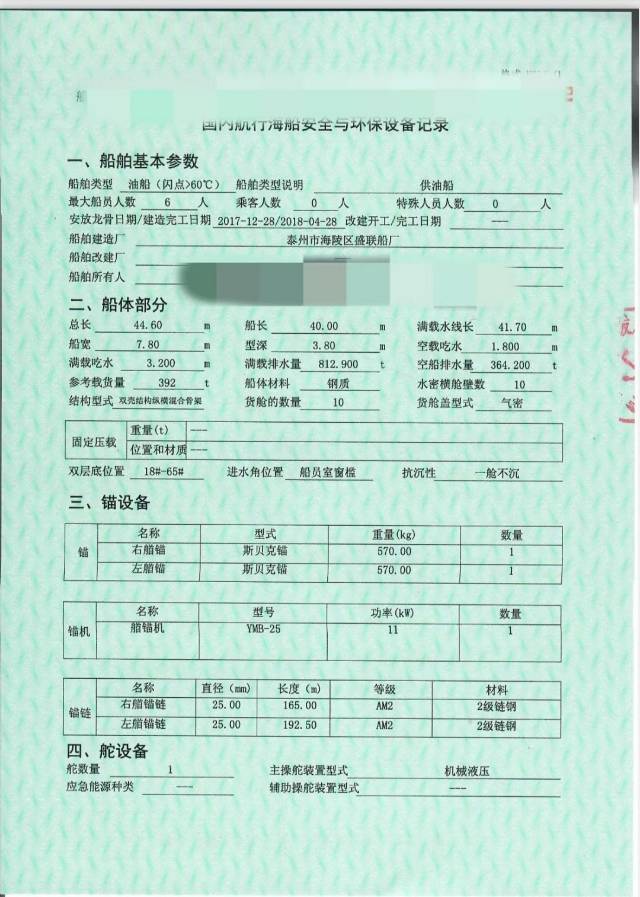 国内航行海船安全与环保设备记录
一、船舶基本参数
船舶类型 油船（闪点>60℃） 船舶类型说明 供油船
最大船员人数 6 人 乘客人数 0 人 特殊人员人数 0 人
安放龙骨日期/建造完工日期 2017-12-28/2018-04-28 改建开工/完工日期 ---
船舶建造厂 泰州市海陵区盛联船厂
船舶改建厂
船舶所有人
二、船体部分
总长 44.60 m 船长 40.00 m 满载水线长 41.70 m
船宽 7.80 m 型深 3.80 m 空载吃水 1.800 m
满载吃水 3.200 m 满载排水量 812.900 t 空船排水量 364.200 t
参考载货量 392 t 船体材料 钢质 水密横舱壁数 10
结构型式 双壳结构纵横混合骨架 货舱的数量 10 货舱盖型式 气密
固定压载 重量(t) ---
位置和材质 ---
双层底位置 18#-65# 进水角位置 船员室窗槛 抗沉性 一舱不沉
三、锚设备
锚 名称 型式 重量(kg) 数量
右艏锚 斯贝克锚 570.00 1
左艏锚 斯贝克锚 570.00 1
锚机 名称 型号 功率(kW) 数量
艏锚机 YMB-25 11 1
锚链 名称 直径（mm） 长度（m） 等级 材料
右艏锚链 25.00 165.00 AM2 2级链钢
左艏锚链 25.00 192.50 AM2 2级链钢
四、舵设备
舵数量 1 主操舵装置型式 机械液压
应急能源种类 --- 辅助操舵装置型式 ---